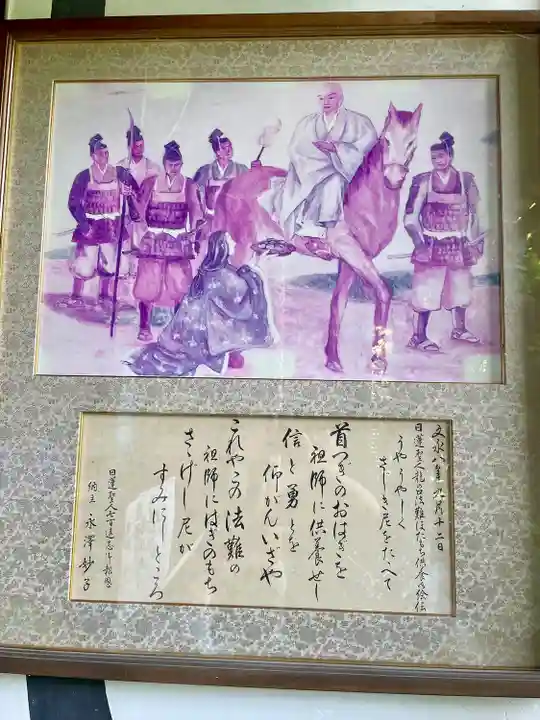 文永八年九月十二日
日蓮聖人龍の口法難ぼたもち供養の絵伝
うやうやしく
さじき尼をたゝへて
首つぎのおはぎを
祖師に供養せし
信と勇とを
仰がんいざや
これやこの法難の
祖師にはぎのもち
さゝげし尼が
すみにしところ
日蓮聖人七百遠忌報恩
納主 永澤妙子